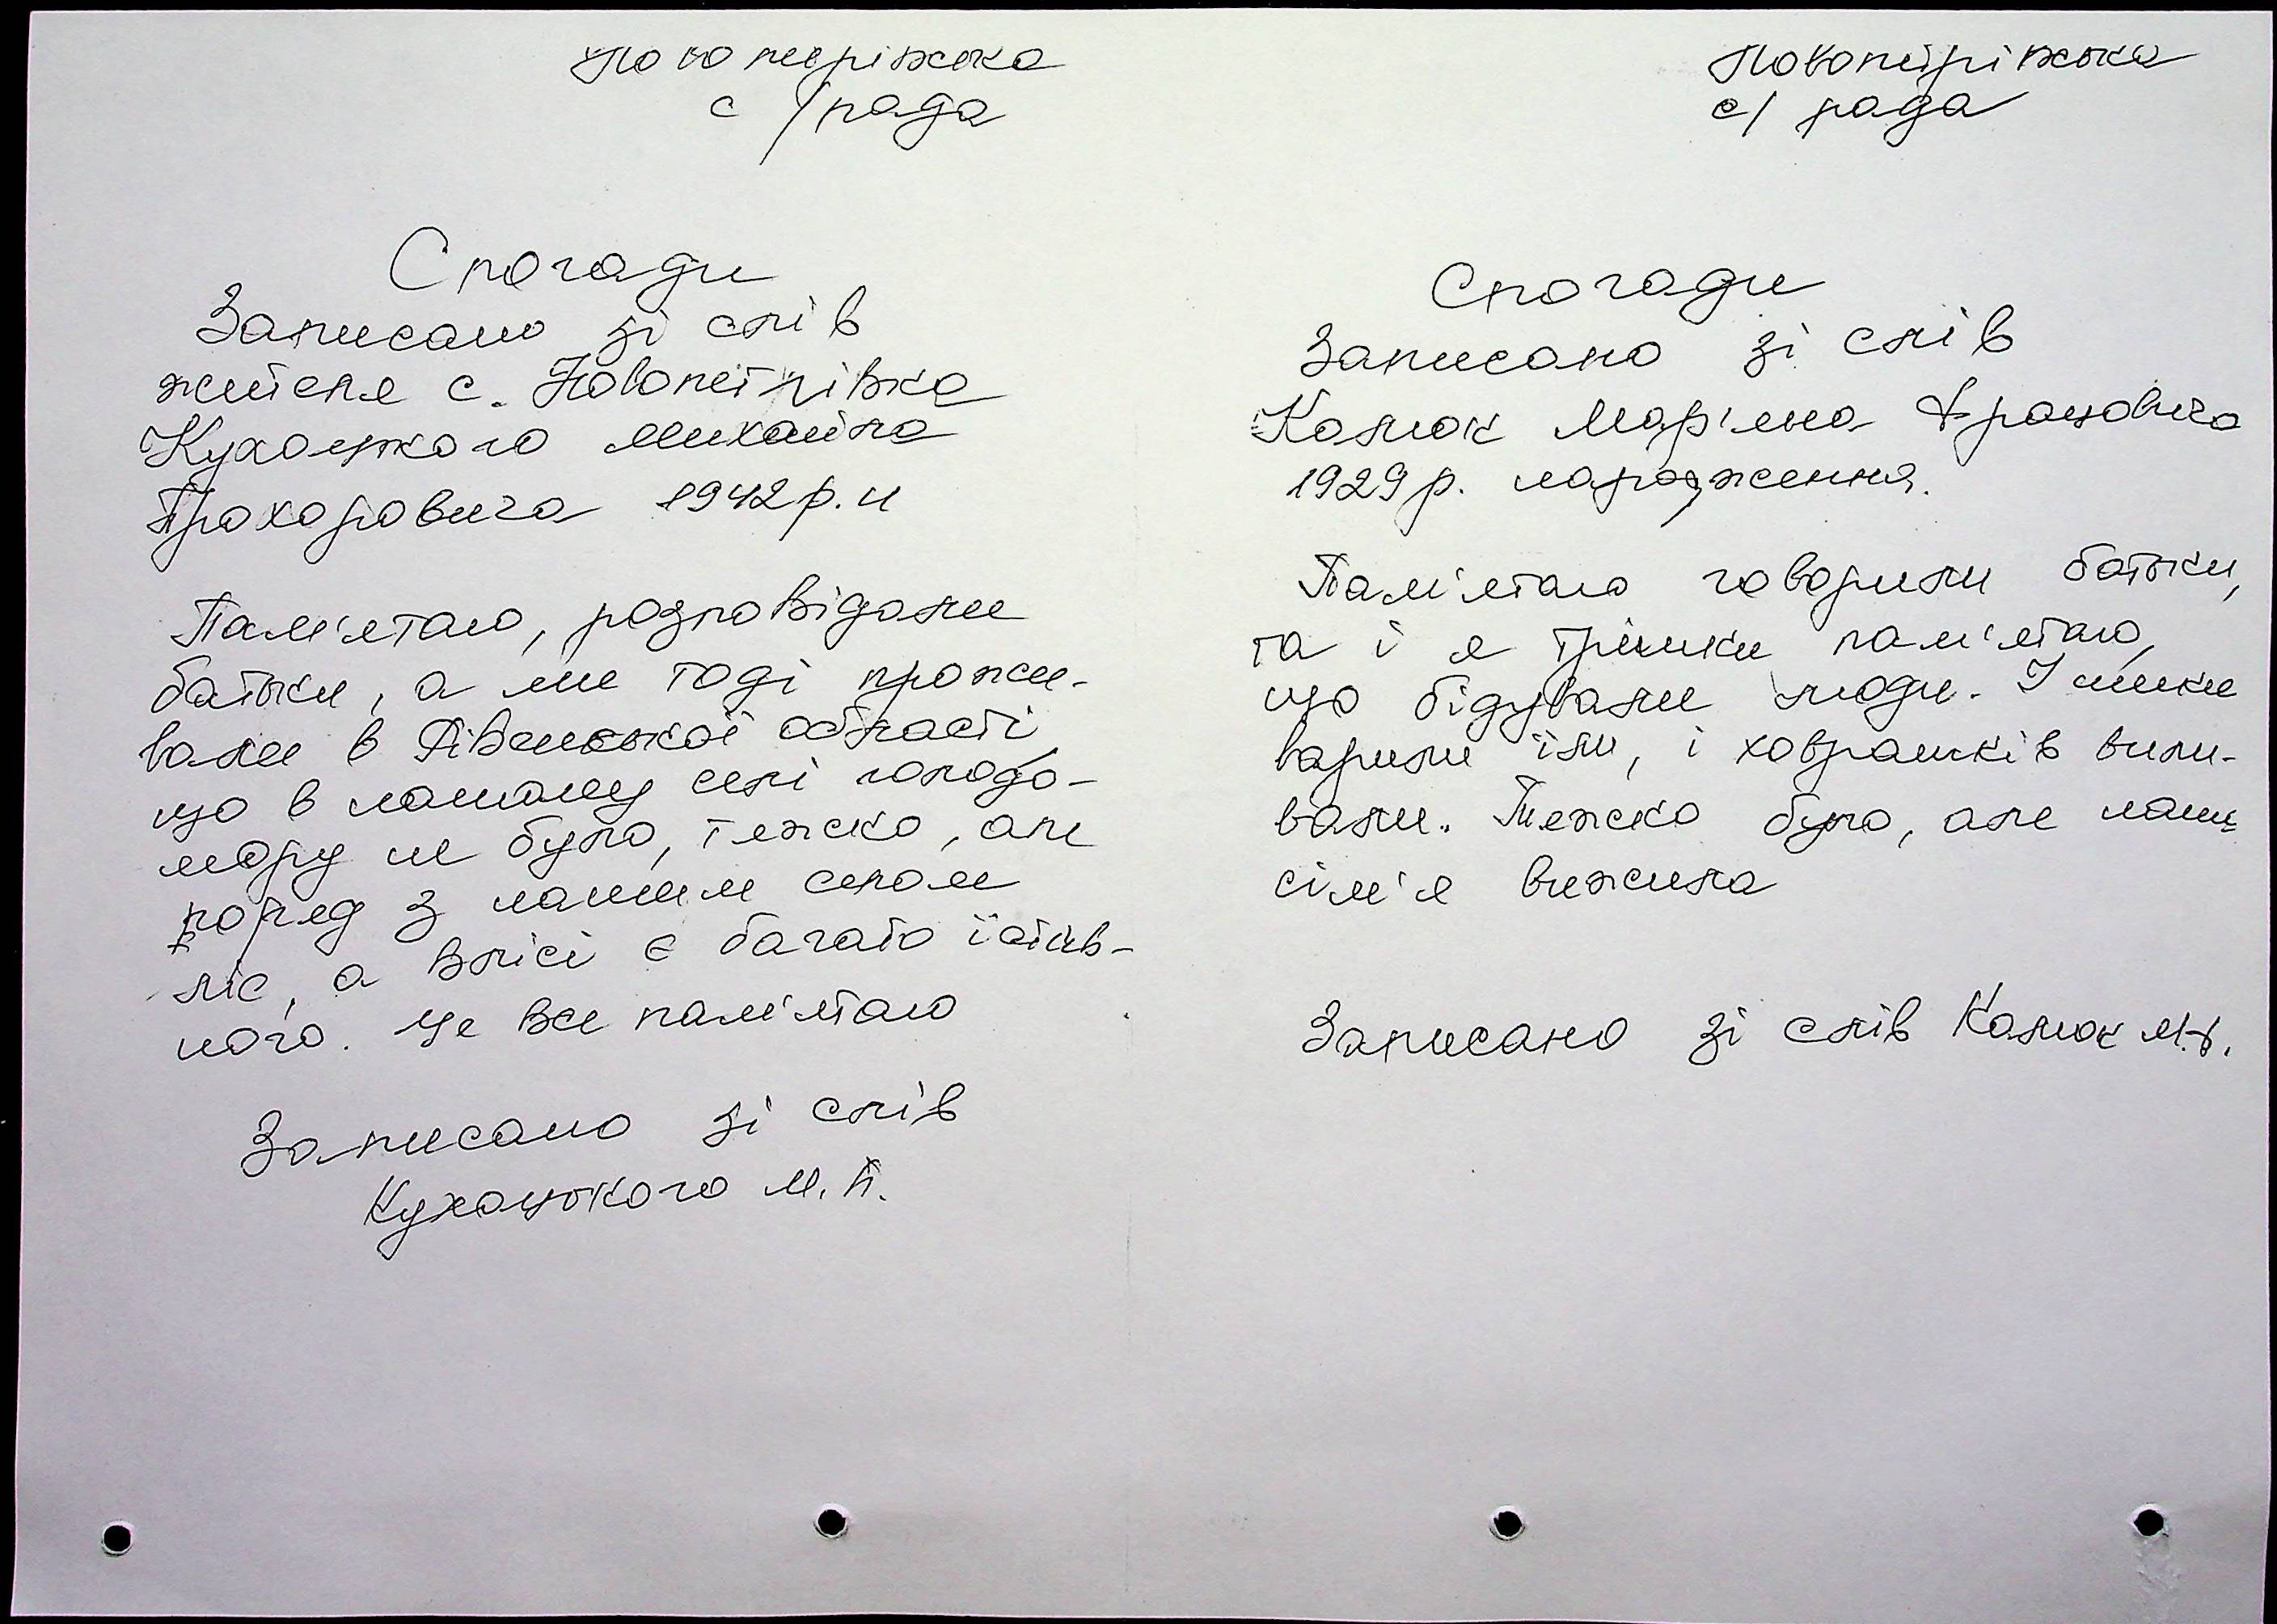 Новопетрівська
с/рада
Спогади
Записано зі слів
жителя с. Новопетрівка
Кухоцького Михайла
Прохоровича 1942р.н
Пам'ятаю, розповідали
батьки, а ми тоді прожи-
вали в Рівненській області,
що в нашому селі голодо-
мору не було, тяжко, але
поряд з нашим селом
ліс, а в лісі є багато їстів-
ного. Це все пам'ятаю
Записано зі слів
Кухоцького М. П.
Новопетрівська
с/ рада
Спогади
Записано зі слів
Калюк Мар'яна Францовича
1929р. народження.
Пам'ятаю говорили батьки,
та і я трішки пам'ятаю,
що бідували люди.
варили їли, і ховрашків вили-
вали. Тяжко було, але наша
сім'я вижила
Записано зі слів Калюк М.Ф.